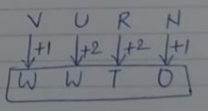 V U R N
+1 +2 +2 +1
W W T O